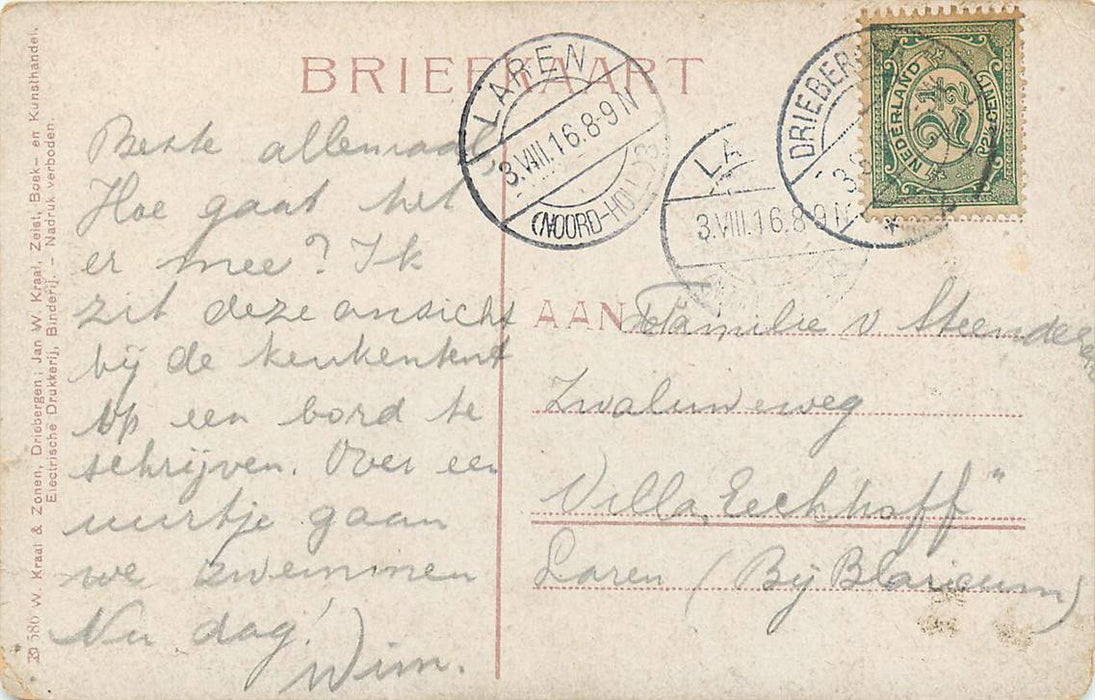 BRIEFKAART
Beste allemaal
Hoe gaat het
er mee? Ik
zit deze ansicht
bij de keukentent
op een bord te
schrijven. Over een
uurtje gaan
we zwemmen
Nu dag!
Wim.
LAREN
3.VIII.16.8-9N
(NOORD-HOLL.)
LA
3.VIII.16.8-9N
DRIEBER
NEDERLAND
2½
2½ CENT
AAN Familie v Steenderen
Zwaluweweg
Villa „Eeckhoff"
Laren (Bij Blaricum)
W. Kraal & Zonen, Driebergen; Jan W. Kraal, Zeist, Boek- en Kunsthandel,
Electrische Drukkerij, Binderij. – Nadruk verboden.